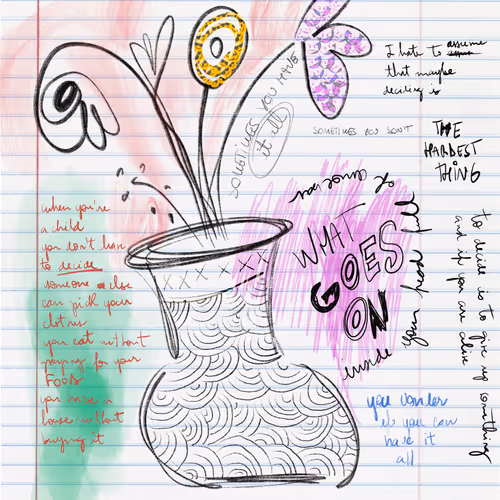 I hate to assume
that maybe
deciding is
THE
HARDEST
THING
to decide is to give up something
and if you are alive
SOMETIMES YOU HAVE
it all
SOMETIMES YOU DON'T
WHAT
GOES
ON
inside your head full
of
you wonder
if you can
have it
all
when you're
a child
you don't have
to decide
someone else
can pick your
clothes
you eat without
paying for your
FOOD
you have a
house without
buying it